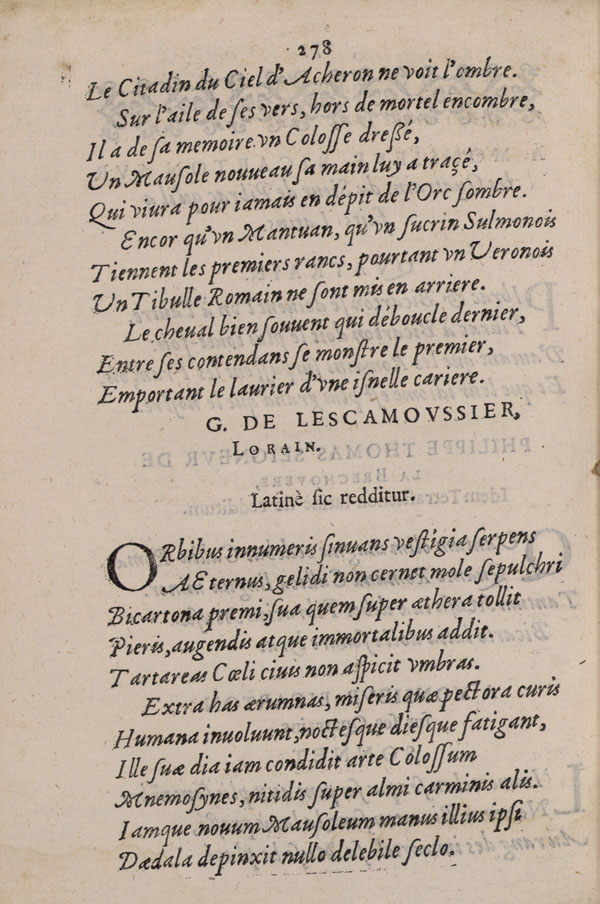 278
Le Citadin du Ciel d'Acheron ne voit l'ombre.
Sur l'aile de ses vers, hors de mortel encombre,
Il a de sa memoire vn Colosse dreßé,
Un Mausole nouueau sa main luy a traçé,
Qui viura pour iamais en dépit de l'Orc sombre.
Encor qu'vn Mantuan, qu'vn sucrin Sulmonois
Tiennent les premiers rancs, pourtant vn Veronois
Un Tibulle Romain ne sont mis en arriere.
Le cheual bien souuent qui déboucle dernier,
Entre ses contendans se monstre le premier,
Emportant le laurier d'vne isnelle cariere.
G. DE LESCAMOVSSIER,
LORAIN.
Latinè sic redditur.
ORbibus innumeris sinuans vestigia serpens
AEternus, gelidi non cernet mole sepulchri
Bicartona premi, sua quem super æthera tollit
Pieris, augendis atque immortalibus addit.
Tartareas Cœli ciuis non aspicit vmbras.
Extra has ærumnas, miseris quæ pectora curis
Humana inuoluunt, noctesque diesque fatigant,
Ille suæ dia iam condidit arte Colossum
Mnemosynes, nitidis super almi carminis alis.
Iamque nouum Mausoleum manus illius ipsi
Dædala depinxit nullo delebile seclo.